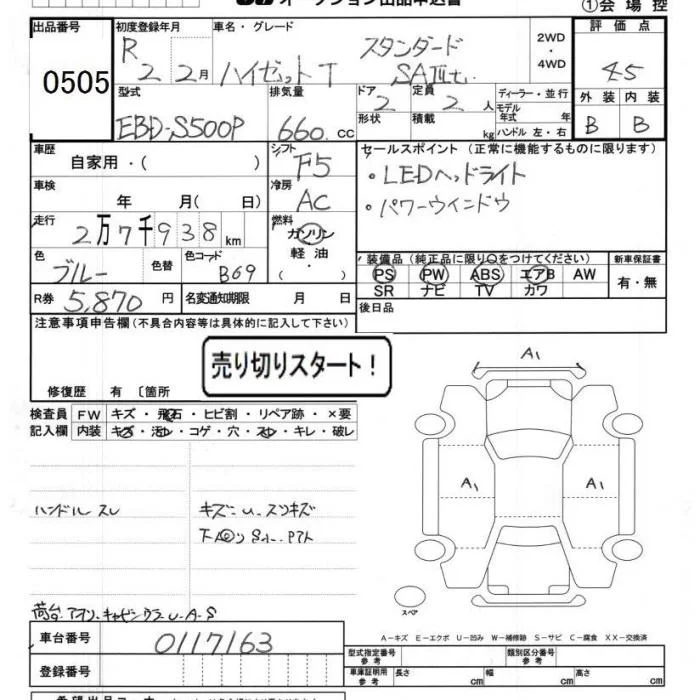 オークション出品申込書
①会場控
出品番号
0505
初度登録年月
R 2 2月
車名・グレード
ハイゼットT
スタンダード
SAⅢt.
2WD
・
4WD
評価点
4.5
外装 内装
B B
型式
EBD-S500P
排気量
660 CC
ドア
2
定員
2 人
形状
積載
kg
ディーラー・並行
モデル
年式 年
ハンドル 左・右
車歴
自家用・( )
シフト
F5
セールスポイント (正常に機能するものに限ります)
・LEDヘッドライト
・パワーウィンドウ
車検
年 月( 日)
冷房
AC
走行
2万7千938km
燃料
ガソリン
軽油
・( )
色
ブルー
色替
色コード
B69
装備品(純正品に限り○をつけてください)
PS PW ABS エアB AW
SR ナビ TV カワ
新車保証書
有・無
R券 5,870 円
名変通知期限 月 日
後日品
注意事項申告欄(不具合内容等は具体的に記入して下さい)
売り切りスタート!
修復歴 有 〔箇所
検査員
記入欄
FW キズ・飛石・ヒビ割・リペア跡・×要
内装 キズ・汚れ・コゲ・穴・スレ・キレ・破レ
ハンドル スレ
キズ・U・スリキズ
A1
A1
A1
スペア
A-キズ E-エクボ U-凹み W-補修跡 S-サビ C-腐食 XX-交換済
車台番号
0117163
登録番号
型式指定番号
参考
類別区分番号
参考
車庫証明用
参考
長さ cm
幅 cm
高さ cm
希望出品コーナー